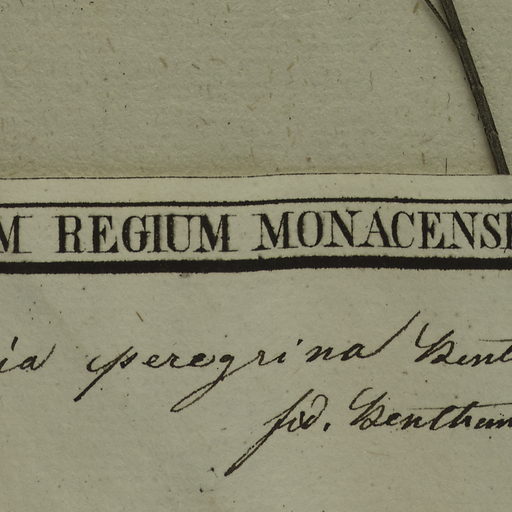 M REGIUM MONACENSE
ia peregrina Bent
fid. Bentham